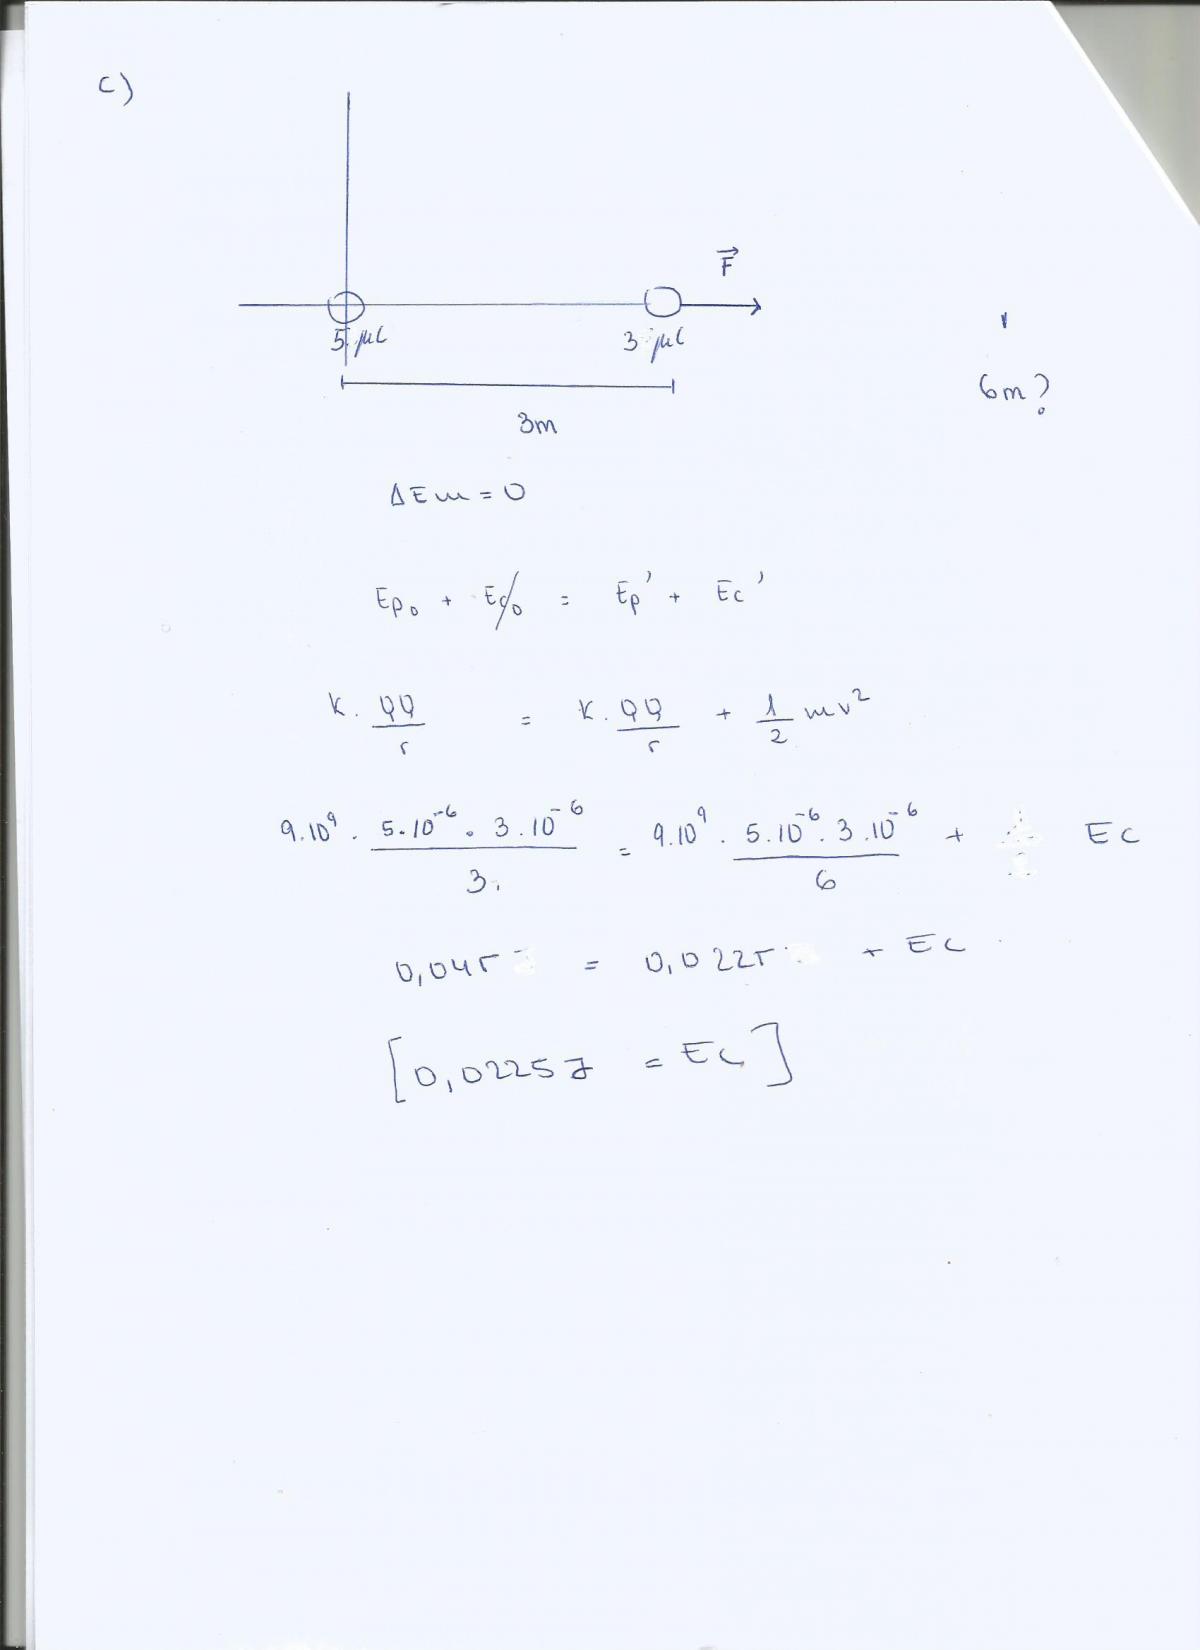 c)
F
5 μC
3 μC
6m?
3m
ΔEm = 0
Ep₀ + Ec₀ = Ep' + Ec'
K. QQ/r = K. QQ/r + 1/2 mv²
9.10⁹ . 5.10⁻⁶ . 3.10⁻⁶/3 = 9.10⁹ . 5.10⁻⁶ . 3.10⁻⁶/6 + Ec
0,045 = 0,0225 + Ec
[0,0225J = Ec]